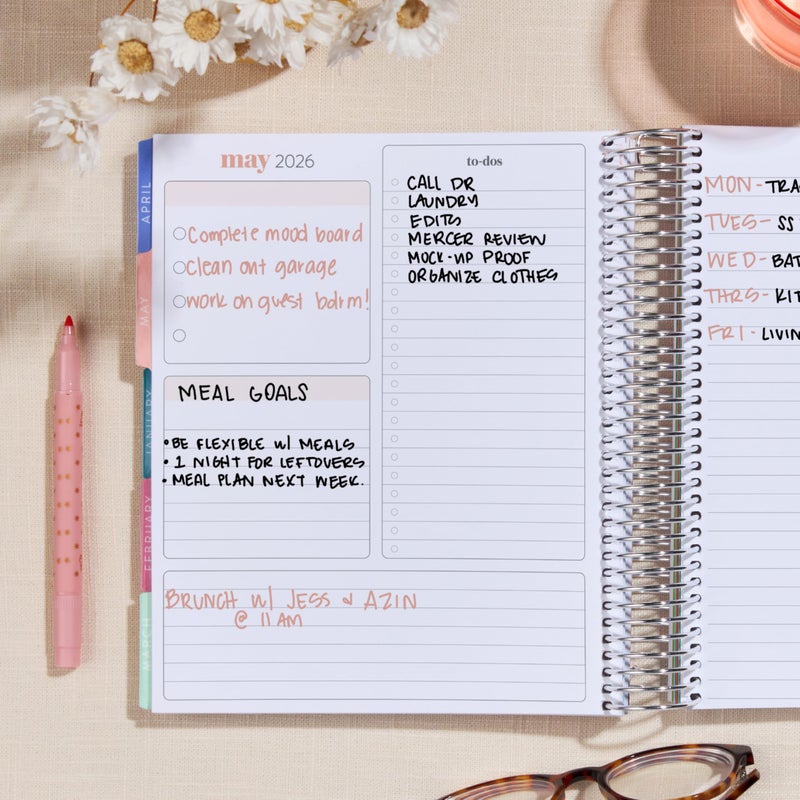 may 2026
Complete mood board
clean out garage
work on guest bdrm!
MEAL GOALS
• BE FLEXIBLE w/ MEALS
• 1 NIGHT FOR LEFTOVERS
• MEAL PLAN NEXT WEEK.
to-dos
CALL DR
LAUNDRY
EDITS
MERCER REVIEW
MOCK-UP PROOF
ORGANIZE CLOTHES
BRUNCH w/ JESS & AZIN
@ 11 AM
APRIL
MAY
JANUARY
FEBRUARY
MARCH
MON - TRA
TUES - SS
WED - BAT
THRS - KIT
FRI - LIVIN